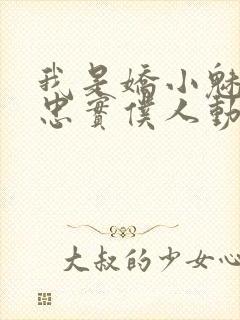 我是嬌小魅
忠實僕人動
大叔的少女心